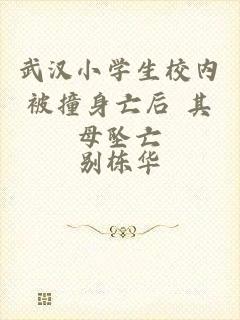 武汉小学生校内
被撞身亡后 其
母坠亡
别栋华